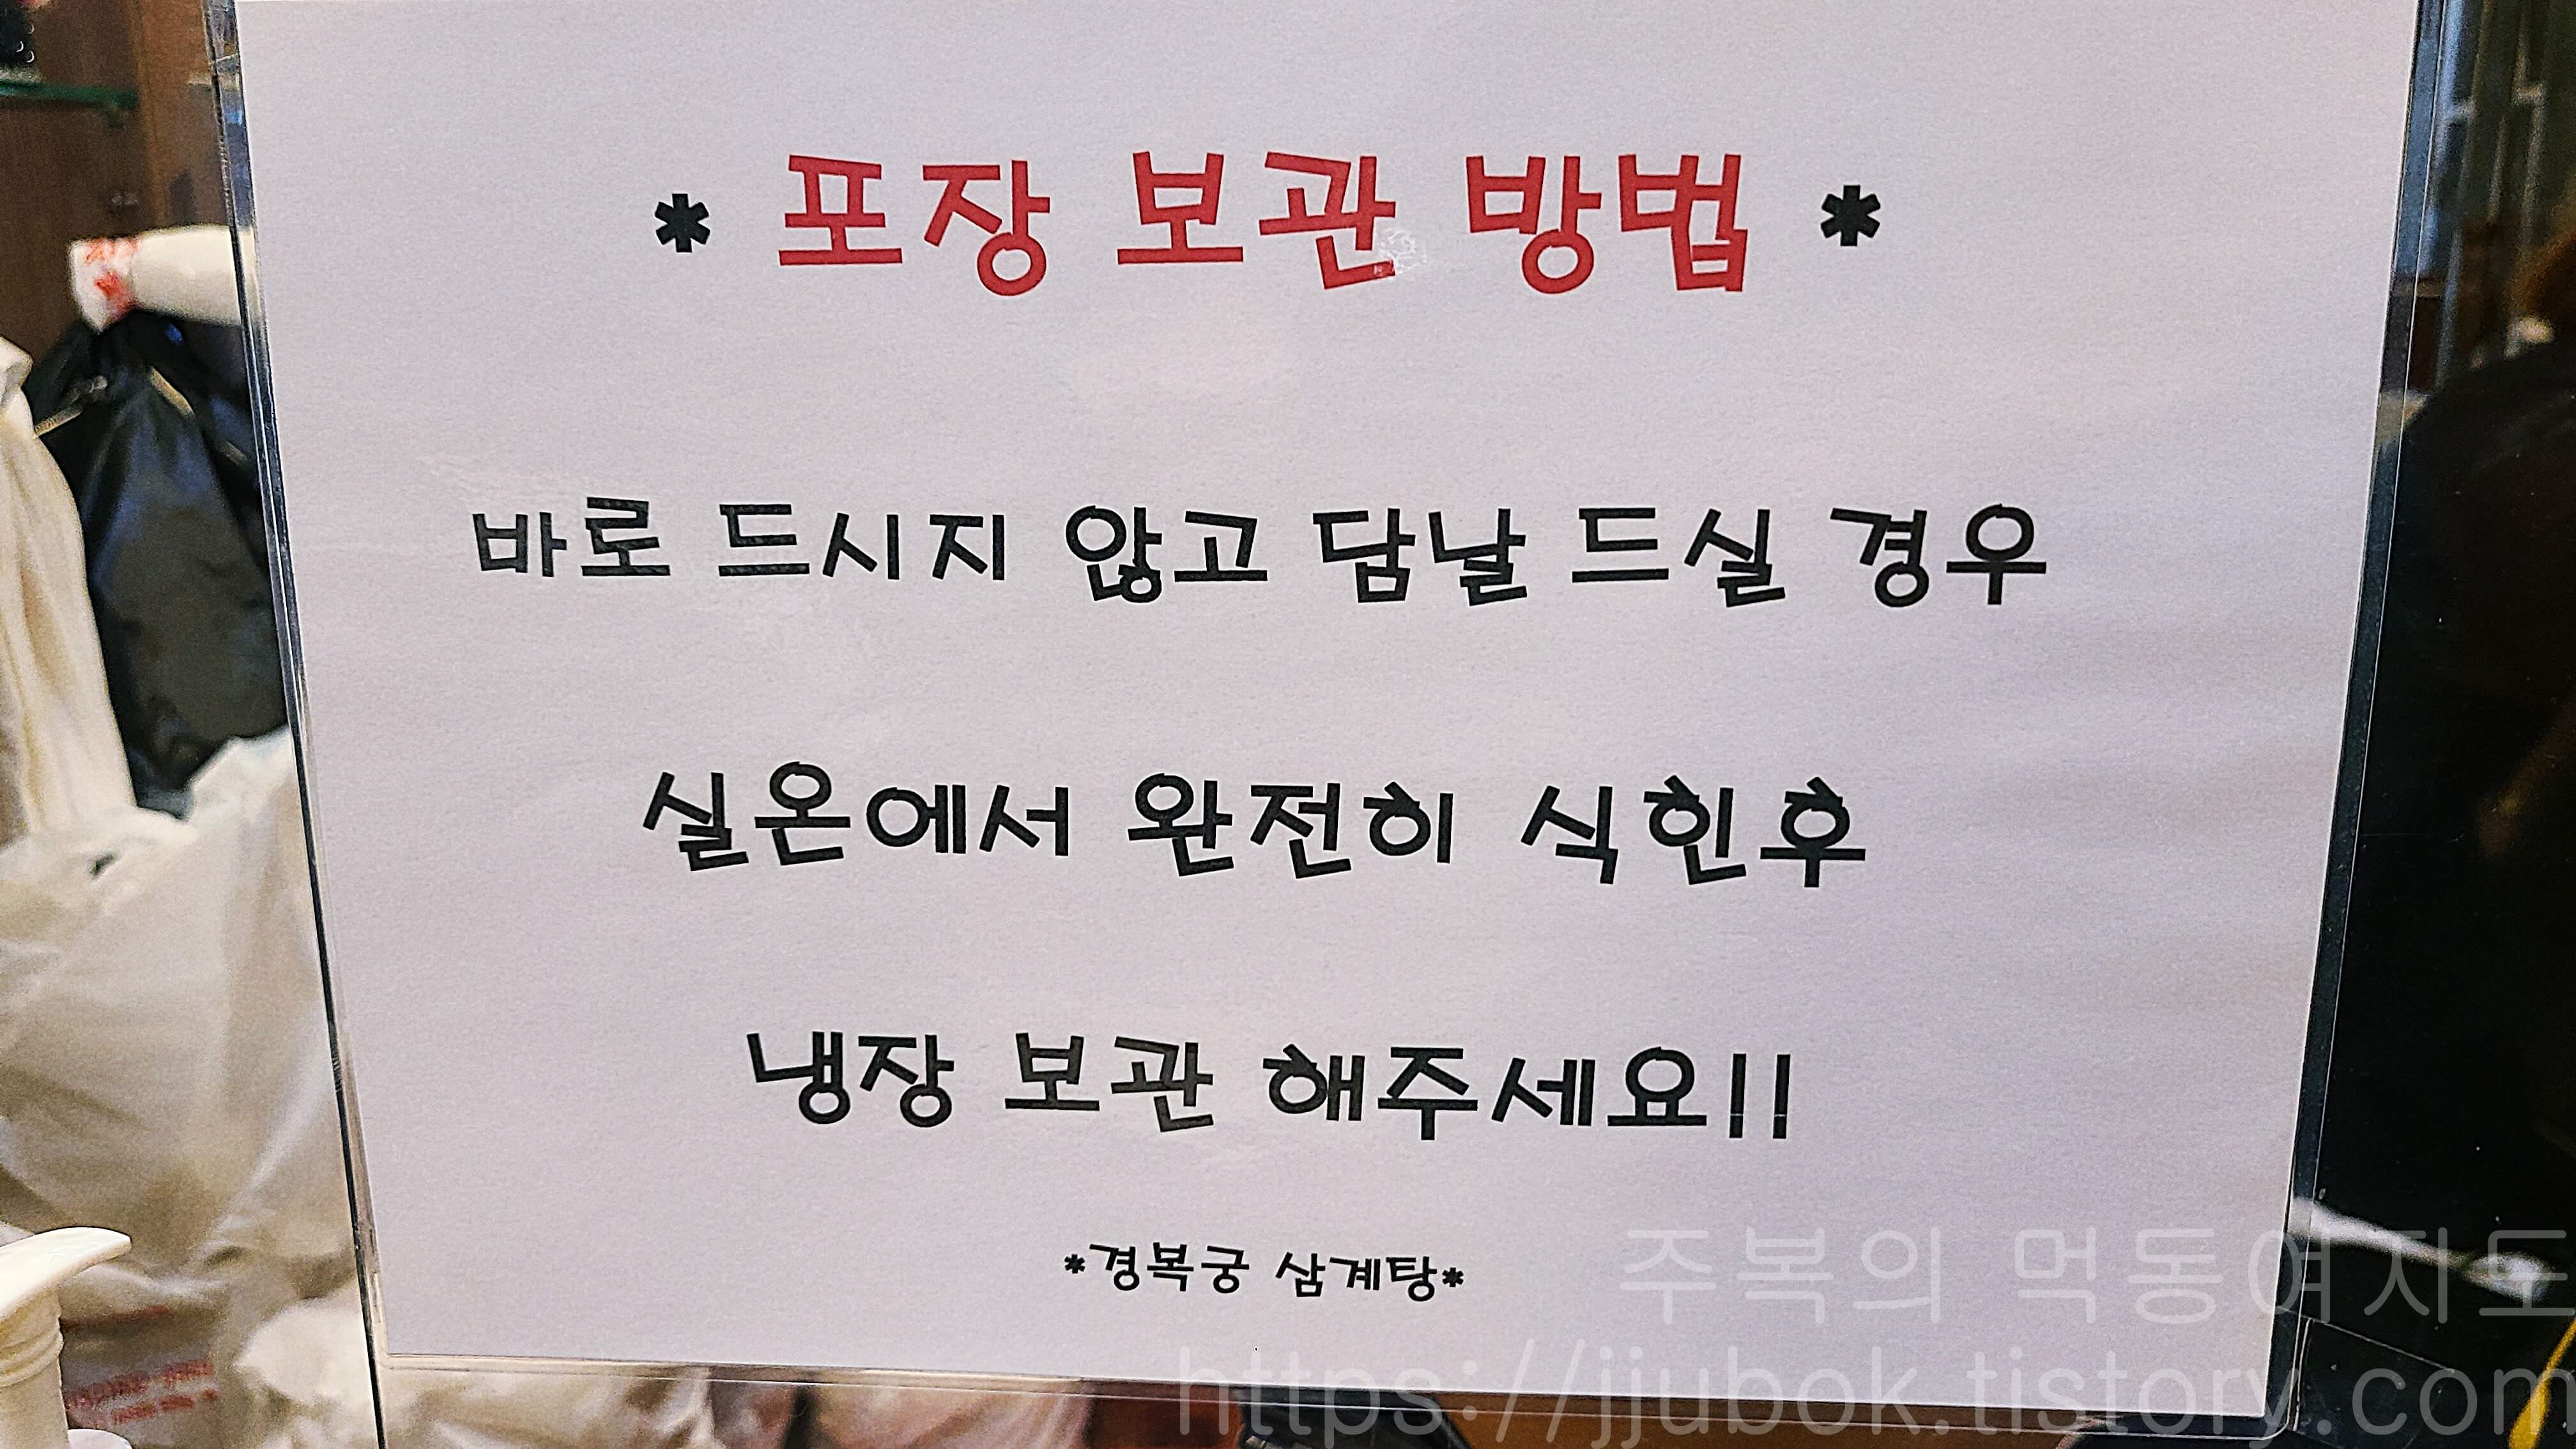 * 포장 보관 방법 *
바로 드시지 않고 담날 드실 경우
실온에서 완전히 식힌후
냉장 보관 해주세요!!
*경복궁 삼계탕*
주복의 먹동여지도
https://jjubok.tistory.com